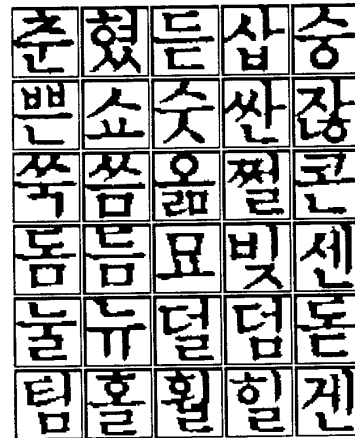 춘 혔 든 삽 숭
쁜 쇼 숫 싼 잖
쑥 씀 옮 쩔 콘
돔 듬 묘 빚 센
눌 뉴 덜 덤 돋
팀 홀 훨 힐 겐